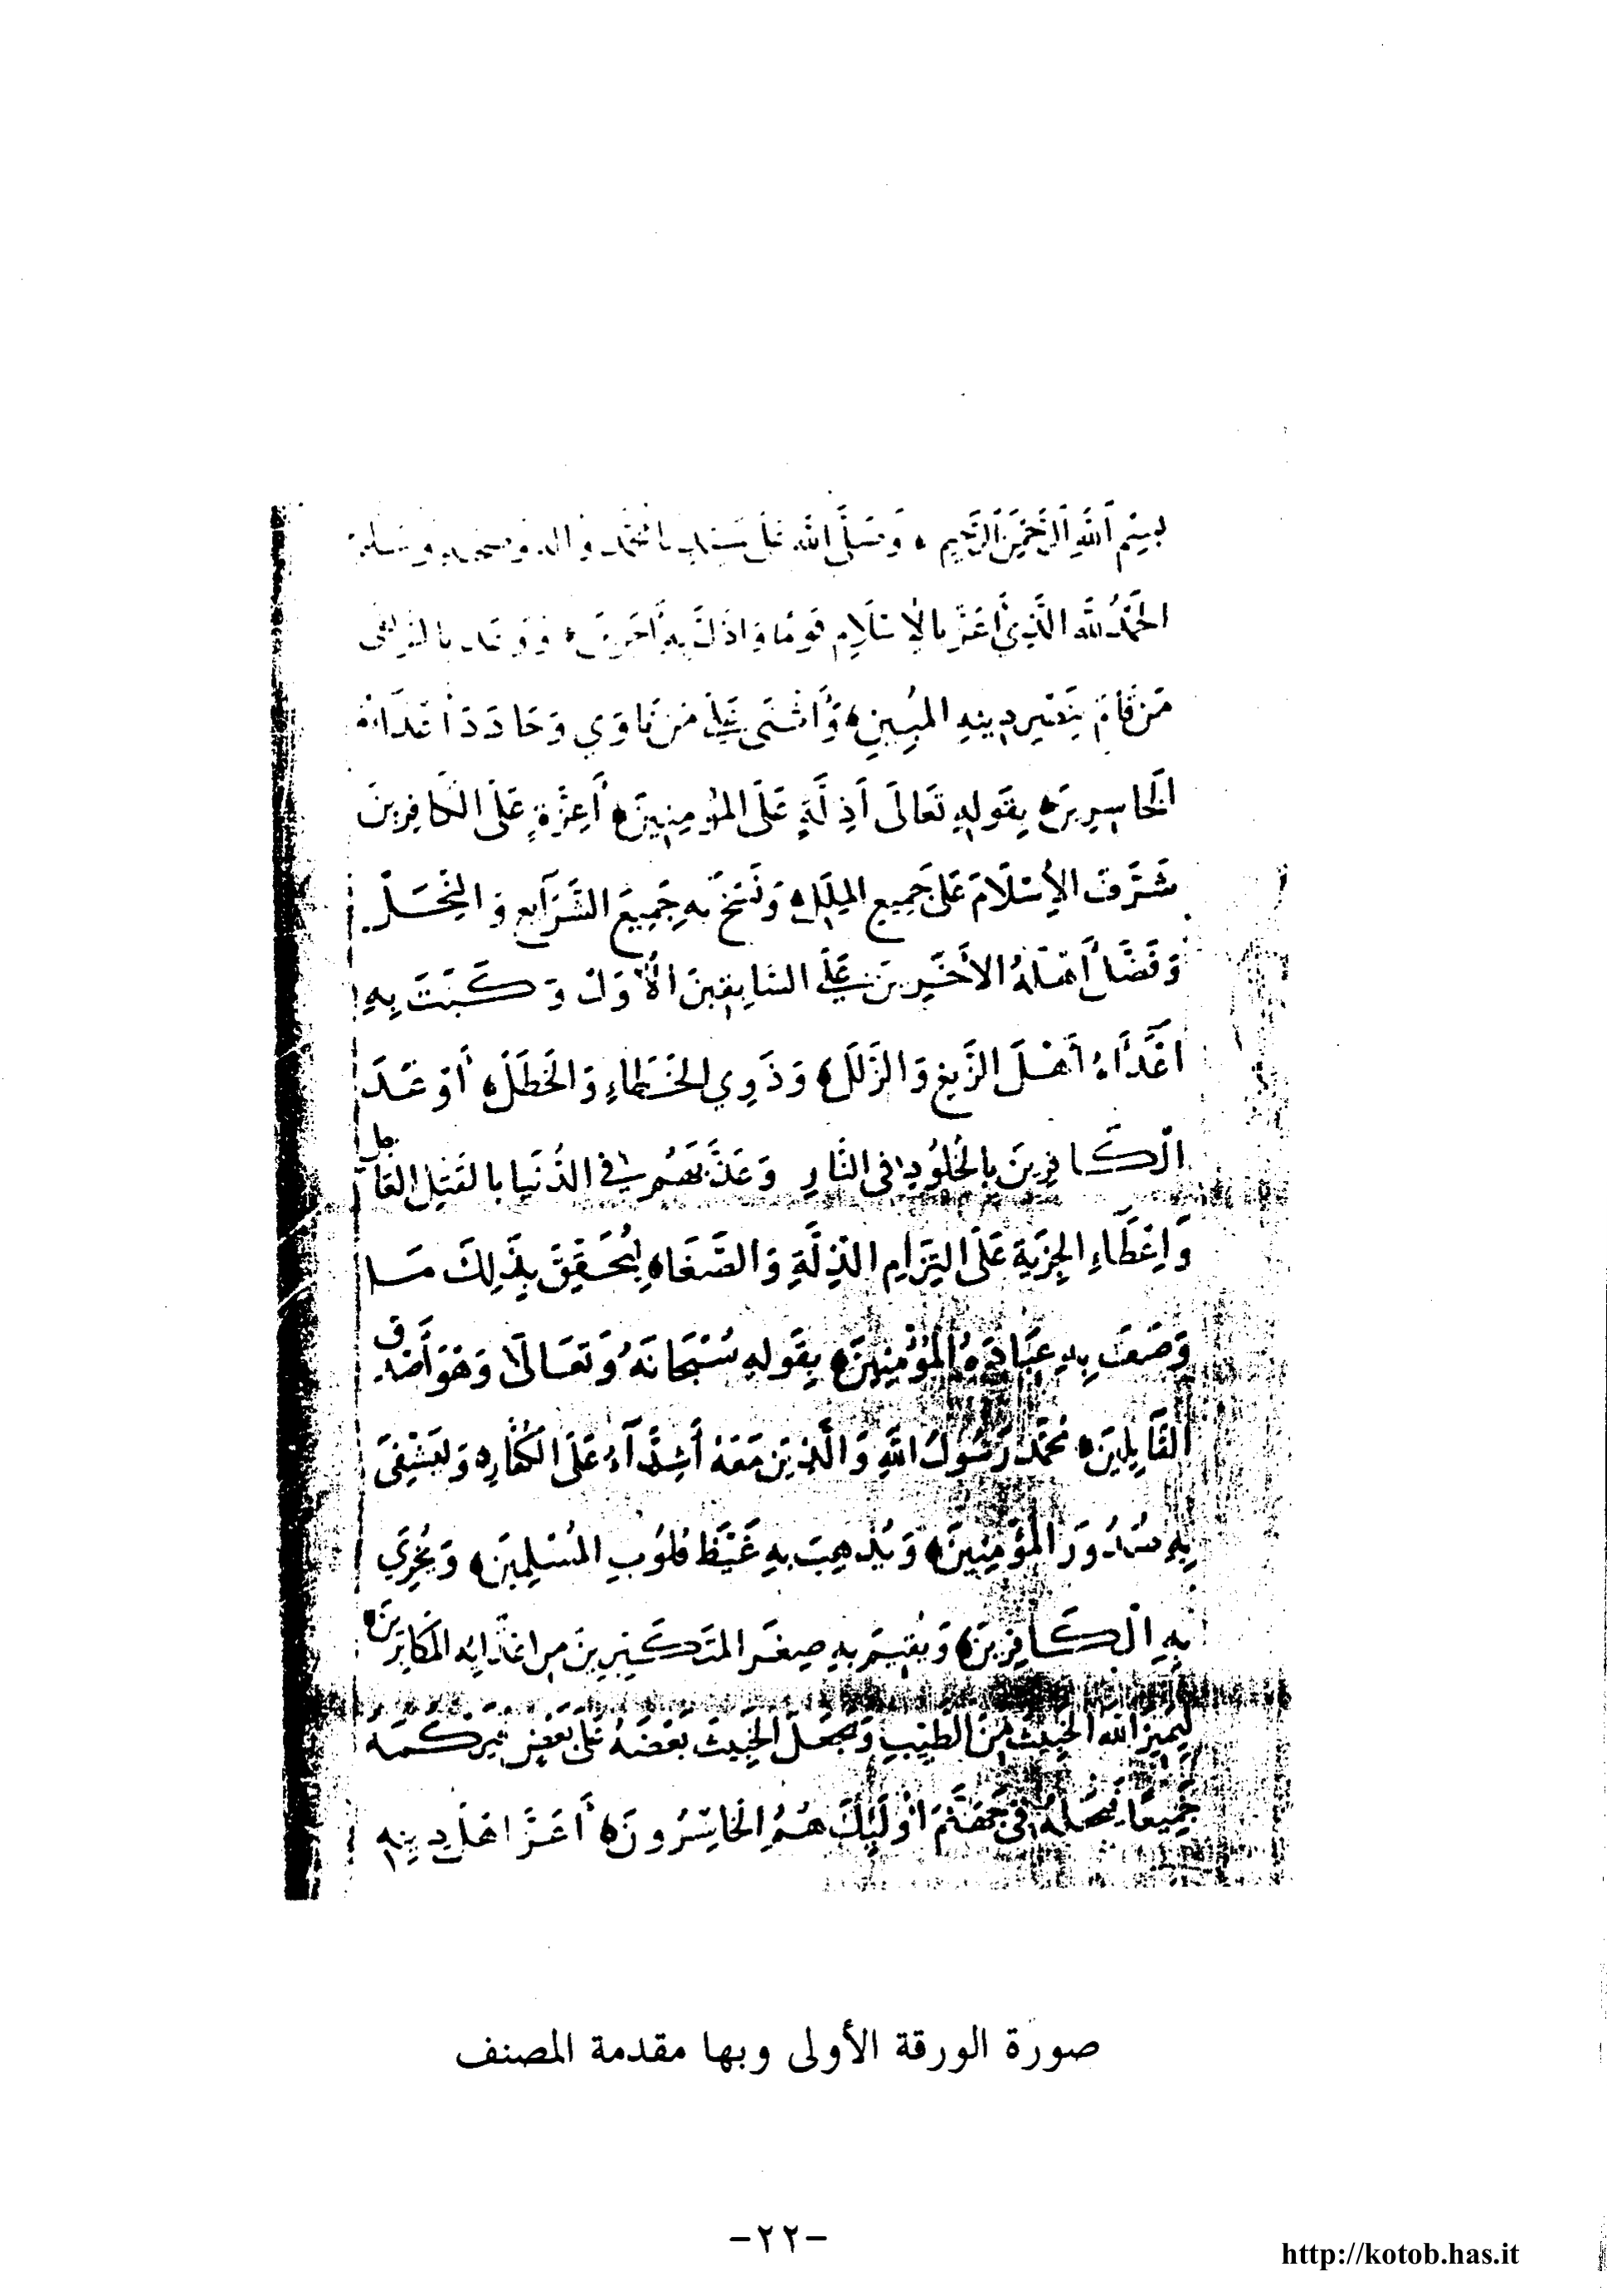 بِسْمِ اللَّهِ الرَّحْمَنِ الرَّحِيمِ ۰ وَصَلَّى اللَّهُ عَلَى سَيِّدِنَا مُحَمَّدٍ وَآلِهِ وَصَحْبِهِ وَسَلَّمَ
الحَمْدُ للَّهِ الَّذِي أَعَزَّ بِالإِسْلَامِ قَوْمًا وَاذَلَّ بِهِ آخَرِينَ ۰ وَوَعَدَ بِالنَّصْرِ
مَنْ قَامَ بِنَصْرِ دِينِهِ المُبِينِ ۰ وَأَثْنَى عَلَى مَنْ نَاوَى وَحَادَدَ أَعْدَاءَهُ
الخَاسِرِينَ ۰ بِقَولِهِ تَعَالَى أَذِلَّةٍ عَلَى المُؤْمِنِينَ ۰ أَعِزَّةٍ عَلَى الكَافِرِينَ
شَرَّفَ الإِسْلَامَ عَلَى جَمِيعِ المِلَلِ ۰ وَنَسَخَ بِهِ جَمِيعَ الشَّرَآيِعِ وَالنِّحَلِ
وَفَضَّلَ أَهْلَهُ الأَخَيرِينَ عَلَى السَّابِقِينَ الأُوَلِ وَكَبَتَ بِهِ
اعْدَآءَهُ أَهْلَ الزَّيغِ وَالزَّلَلِ ۰ وَذَوِي الخَطَاءِ وَالخَطَلِ ۰ أَوعَدَ
الْكَافِرِينَ بِالخُلُودِ فِى النَّارِ وَعَذَّبَهُمْ فِى الدُّنْيَا بِالقَتْلِ العَاجِلِ
وَإِعْطَاءِ الجِزيَةِ عَلَى التِزَامِ الذِّلَّةِ وَالصَّغَارِ لِيُحَقِّقَ بِذَلِكَ مَا
وَصَفَ بِهِ عِبَادَهُ المُؤْمِنِينَ ۰ بِقَولِهِ سُبْحَانَهُ وَتَعَالَى وَهْوَ أَصْدَقُ
القَآيِلِينَ ۰ مُحَمَّدٌ رَسُولُ اللَّهِ وَالَّذِينَ مَعَهُ أَشِدَّآءُ عَلَى الكُفَّارِ ۰ وَلِيَشْفِىَ
بِهِ صُدُورَ المُؤْمِنِينَ ۰ وَيُذْهِبَ بِهِ غَيْظَ قُلُوبِ المُسْلِمِينَ ۰ وَيُخْزِي
بِهِ الْكَافِرِينَ ۰ وَيُقِيمَ بِهِ صِغَرَ المتَكَبِّرِينَ مِن اعْدَايِهِ المكَابِرِينَ ۰
لِيَمِيزَ اللَّهُ الخَبِيثَ مِنَ الطَّيِّبِ وَيَجْعَلَ الخَبِيثَ بَعْضَهُ عَلَى بَعْضٍ فَيَركُمَهُ
جَمِيعًا فَيَجْعَلَهُ فِى جَهَنَّمَ أُولَئِكَ هُمُ الخَاسِرُونَ ۰ أَعَزَّ اهْلَ دِينِهِ
صورة الورقة الأولى وبها مقدمة المصنف
-٢٢-
http://kotob.has.it